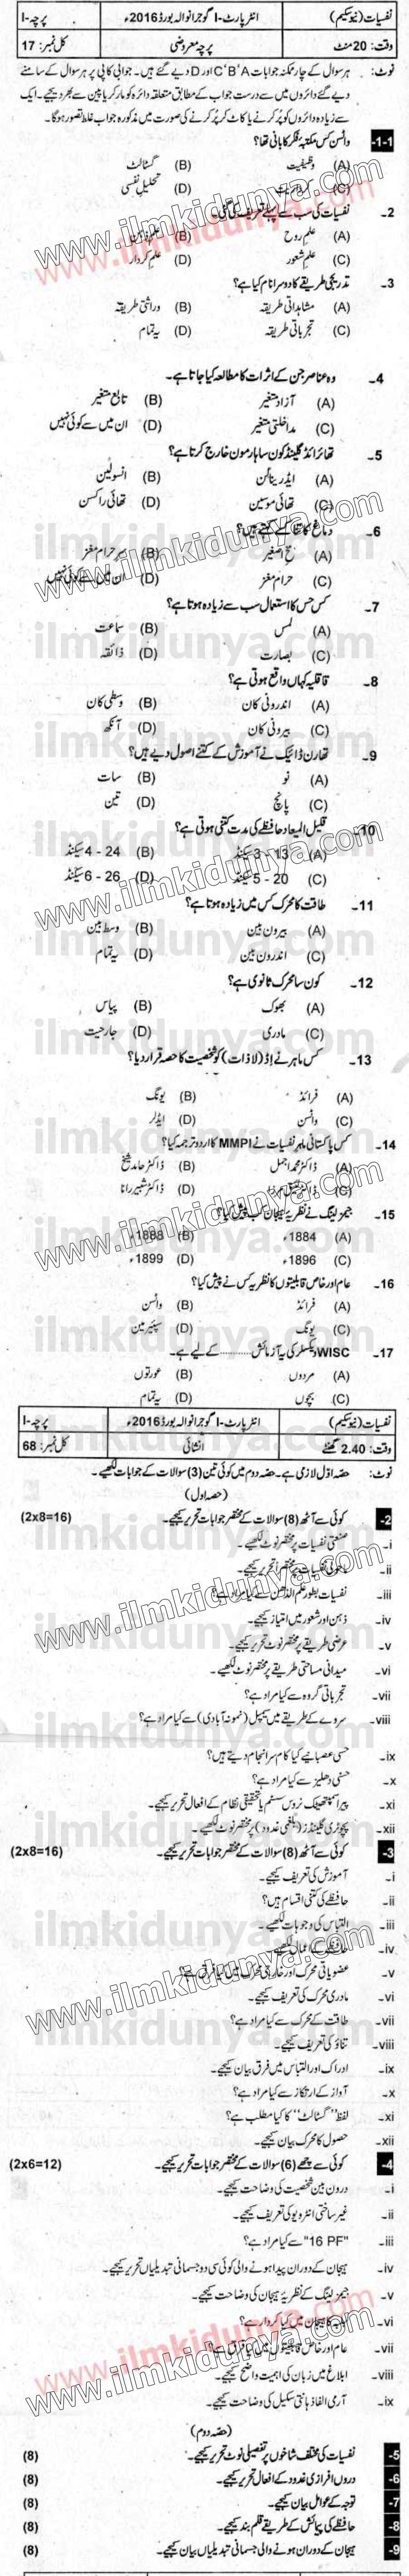 نفسیات (نیو سکیم) انٹر پارٹ-I گوجرانوالہ بورڈ 2016ء پرچہ-I
وقت: 20 منٹ پرچہ معروضی کل نمبر: 17
نوٹ: ہر سوال کے چار ممکنہ جوابات A، B، C اور D دیے گئے ہیں۔ جوابی کاپی پر ہر سوال کے سامنے
دیے گئے دائروں میں سے درست جواب کے مطابق متعلقہ دائرہ کو مارکر یا پین سے بھر دیجیے۔ ایک
سے زیادہ دائروں کو پُر کرنے یا کاٹ کر پُر کرنے کی صورت میں مذکورہ جواب غلط تصور ہو گا۔
1-1- واٹسن کس مکتبہ فکر کا بانی تھا؟
(A) وظیفیت (B) گسٹالٹ
(C) کرداریت (D) تحلیل نفسی
2- نفسیات کی سب سے پہلے تعریف کی گئی۔
(A) علم روح (B) علم ذہن
(C) علم شعور (D) علم کردار
3- تدریجی طریقے کا دوسرا نام کیا ہے؟
(A) مشاہداتی طریقہ (B) وراثتی طریقہ
(C) تجرباتی طریقہ (D) یہ تمام
4- وہ عناصر جن کے اثرات کا مطالعہ کیا جاتا ہے۔
(A) آزاد متغیر (B) تابع متغیر
(C) مداخلتی متغیر (D) ان میں سے کوئی نہیں
5- تھائرائڈ گلینڈ کون سا ہارمون خارج کرتا ہے؟
(A) ایڈرینالن (B) انسولین
(C) تھائی موسین (D) تھائی راکسن
6- دماغ کا تنا کسے کہتے ہیں؟
(A) مخ اصغر (B) سر حرام مغز
(C) حرام مغز (D) ان میں سے کوئی نہیں
7- کس حس کا استعمال سب سے زیادہ ہوتا ہے؟
(A) لمس (B) سماعت
(C) بصارت (D) ذائقہ
8- قوقلیہ کہاں واقع ہوتی ہے؟
(A) اندرونی کان (B) وسطی کان
(C) بیرونی کان (D) آنکھ
9- تھارن ڈائیک نے آموزش کے کتنے اصول دیے ہیں؟
(A) نو (B) سات
(C) پانچ (D) تین
10- قلیل المیعاد حافظے کی مدت کتنی ہوتی ہے؟
(A) 3 - 13 سیکنڈ (B) 4 - 24 سیکنڈ
(C) 5 - 20 سیکنڈ (D) 6 - 26 سیکنڈ
11- طاقت کا محرک کس میں زیادہ ہوتا ہے؟
(A) بیرون بین (B) وسط بین
(C) اندرون بین (D) یہ تمام
12- کون سا محرک ثانوی ہے؟
(A) بھوک (B) پیاس
(C) مادری (D) جارحیت
13- کس ماہر نے اڈ (لاذات) کو شخصیت کا حصہ قرار دیا؟
(A) فرائڈ (B) یونگ
(C) واٹسن (D) ایڈلر
14- کس پاکستانی ماہر نفسیات نے MMPI کا اردو ترجمہ کیا؟
(A) ڈاکٹر محمد اجمل (B) ڈاکٹر حامد شیخ
(C) ڈاکٹر (D) ڈاکٹر شبیر رانا
15- جیمز لینگ نے نظریہ ہیجان کب پیش کیا؟
(A) 1884ء (B) 1888ء
(C) 1896ء (D) 1899ء
16- عام اور خاص قابلیتوں کا نظریہ کس نے پیش کیا؟
(A) فرائڈ (B) واٹسن
(C) یونگ (D) سپیئرمین
17- WISC ویکسلر کی یہ آزمائش .......... کے لیے ہے۔
(A) مردوں (B) عورتوں
(C) بچوں (D) یہ تمام
نفسیات (نیو سکیم) انٹر پارٹ-I گوجرانوالہ بورڈ 2016ء پرچہ-I
وقت: 2.40 گھنٹے انشائی کل نمبر: 68
نوٹ: حصہ اوّل لازمی ہے۔ حصہ دوم میں کوئی تین (3) سوالات کے جوابات لکھیے۔
(حصہ اول)
2- کوئی سے آٹھ (8) سوالات کے مختصر جوابات تحریر کیجیے۔ (2x8=16)
i- صنعتی نفسیات پر مختصر نوٹ لکھیے۔
ii- ماحولی نفسیات پر مختصراً تحریر کیجیے۔
iii- نفسیات بطور علم الذہن سے کیا مراد ہے؟
iv- ذہن اور شعور میں امتیاز کیجیے۔
v- عرضی طریقے پر مختصر نوٹ تحریر کیجیے۔
vi- میدانی مساحتی طریقے پر مختصر نوٹ لکھیے۔
vii- تجرباتی گروہ سے کیا مراد ہے؟
viii- سروے کے طریقے میں سیمپل (نمونہ آبادی) سے کیا مراد ہے؟
ix- حسی عصبانیے کیا کام سرانجام دیتے ہیں؟
x- حسی دہلیز سے کیا مراد ہے؟
xi- پیراسمپتھیٹک نروس سسٹم یا تحقیقی نظام کے افعال تحریر کیجیے۔
xii- پچوٹری گلینڈز (بلغمی غدود) پر مختصر نوٹ لکھیے۔
3- کوئی سے آٹھ (8) سوالات کے مختصر جوابات تحریر کیجیے۔ (2x8=16)
i- آموزش کی تعریف کیجیے۔
ii- حافظے کی کتنی اقسام ہیں؟
iii- التباس کی وجوہات لکھیے۔
iv- حافظے کے اعمال لکھیے۔
v- عضویاتی محرک اور خارجی محرک میں کیا فرق ہے؟
vi- مادری محرک کی تعریف کیجیے۔
vii- طاقت کے محرک سے کیا مراد ہے؟
viii- تناؤ کی تعریف کیجیے۔
ix- ادراک اور التباس میں فرق بیان کیجیے۔
x- آواز کے ارتکاز سے کیا مراد ہے؟
xi- لفظ "گسٹالٹ" کا کیا مطلب ہے؟
xii- حصول کا محرک بیان کیجیے۔
4- کوئی سے چھے (6) سوالات کے مختصر جوابات تحریر کیجیے۔ (2x6=12)
i- دروں بین شخصیت کی وضاحت کیجیے۔
ii- غیر ساختی انٹرویو کی تعریف کیجیے۔
iii- "16 PF" سے کیا مراد ہے؟
iv- ہیجان کے دوران پیدا ہونے والی کوئی سی دو جسمانی تبدیلیاں تحریر کیجیے۔
v- جیمز لینگ کے نظریہ ہیجان کی وضاحت کیجیے۔
vi- کا ہیجان میں کیا کردار ہے؟
vii- عام اور خاص قابلیتوں میں کیا فرق ہے؟
viii- ابلاغ میں زبان کی اہمیت واضح کیجیے۔
ix- آرمی الفا ذہانتی سکیل کی وضاحت کیجیے۔
(حصہ دوم)
5- نفسیات کی مختلف شاخوں پر تفصیلی نوٹ تحریر کیجیے۔ (8)
6- دروں افرازی غدود کے افعال تحریر کیجیے۔ (8)
7- توجہ کے عوامل بیان کیجیے۔ (8)
8- حافظے کی پیمائش کے طریقے قلم بند کیجیے۔ (8)
9- ہیجان کے دوران ہونے والی جسمانی تبدیلیاں بیان کیجیے۔ (8)